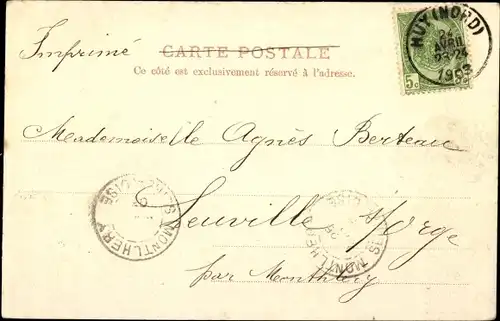 Imprimé
CARTE POSTALE
Ce côté est exclusivement réservé à l'adresse.
5c
HUY (NORD)
24
AVRIL
23-24
1903
Mademoiselle Agnès Berteau
Leuville s/Orge
par Montlhéry
MONTLHERY
MONTLHE